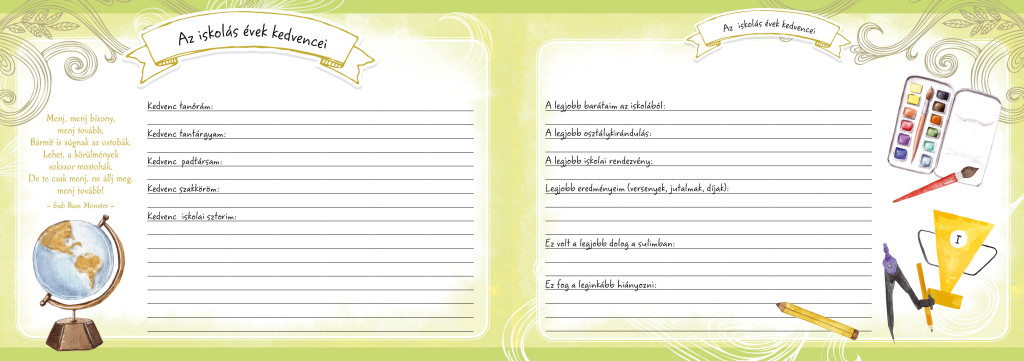 Az iskolás évek kedvencei
Menj, menj bizony,
menj tovább,
Bármit is súgnak az ostobák,
Lehet, a körülmények
sokszor mostohák,
De te csak menj, ne állj meg,
menj tovább!
~ Sub Bass Monster ~
Kedvenc tanórám:
Kedvenc tantárgyam:
Kedvenc padtársam:
Kedvenc szakköröm:
Kedvenc iskolai sztorim:
Az iskolás évek kedvencei
A legjobb barátaim az iskolából:
A legjobb osztálykirándulás:
A legjobb iskolai rendezvény:
Legjobb eredményeim (versenyek, jutalmak, díjak):
Ez volt a legjobb dolog a sulimban:
Ez fog a leginkább hiányozni:
1